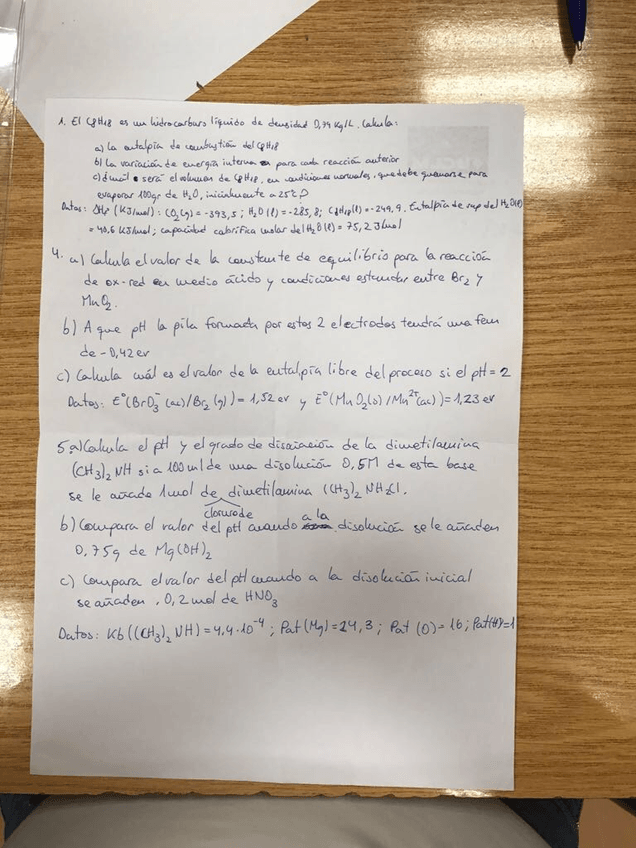 1. El C8H18 es un hidrocarburo líquido de densidad 0,79 Kg/L. Calcula:
a) La entalpía de combustión del C8H18
b) La variación de energía interna para cada reacción anterior
c) ¿cuál será el volumen de C8H18, en condiciones normales, que debe quemarse para
evaporar 100gr de H2O, inicialmente a 25ºC?
Datos: ΔHfº (KJ/mol): CO2(g) = -393,5; H2O(l) = -285,8; C8H18(l) = -249,9. Entalpía de vap del H2O(l)
= 40,6 KJ/mol; capacidad calorífica molar del H2O(l) = 75,2 J/mol
4. a) Calcula el valor de la constante de equilibrio para la reacción
de ox-red en medio ácido y condiciones estandar entre Br2 y
MnO2.
b) A que pH la pila formada por estos 2 electrodos tendrá una fem
de -0,42 ev
c) Calcula cuál es el valor de la entalpía libre del proceso si el pH = 2
Datos: Eº(BrO3- (ac)/Br2 (g)) = 1,52 ev y Eº(MnO2(s)/Mn2+(ac)) = 1,23 ev
5. a) Calcula el pH y el grado de disociación de la dimetilamina
(CH3)2 NH si a 100 ml de una disolución 0,5M de esta base
se le añade 1mol de dimetilamina (CH3)2 NH2Cl.
cloruro de
b) Compara el valor del pH cuando a la disolución se le añaden
0,75g de Mg(OH)2
c) Compara el valor del pH cuando a la disolución inicial
se añaden 0,2 mol de HNO3
Datos: Kb((CH3)2 NH) = 4,4·10-4; Pat(Mg) = 24,3; Pat (O) = 16; Pat(H) = 1